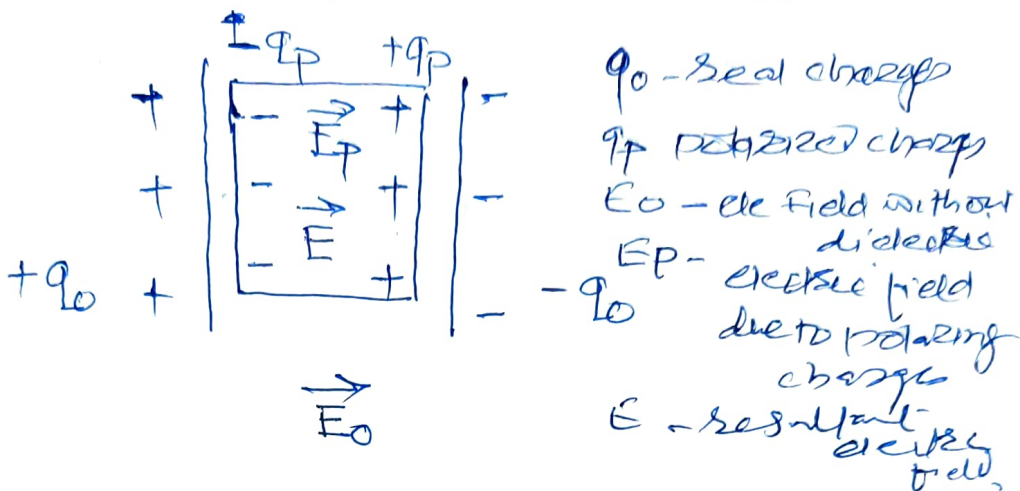 - qp +qp
+ - Ep + -
+ - E + -
+q₀ + - + - -q₀
E₀
q₀ - real charges
qp polarized charges
E₀ - ele field without
dielectric
Ep - electric field
due to polarizing
charges
E - resultant
electric
field